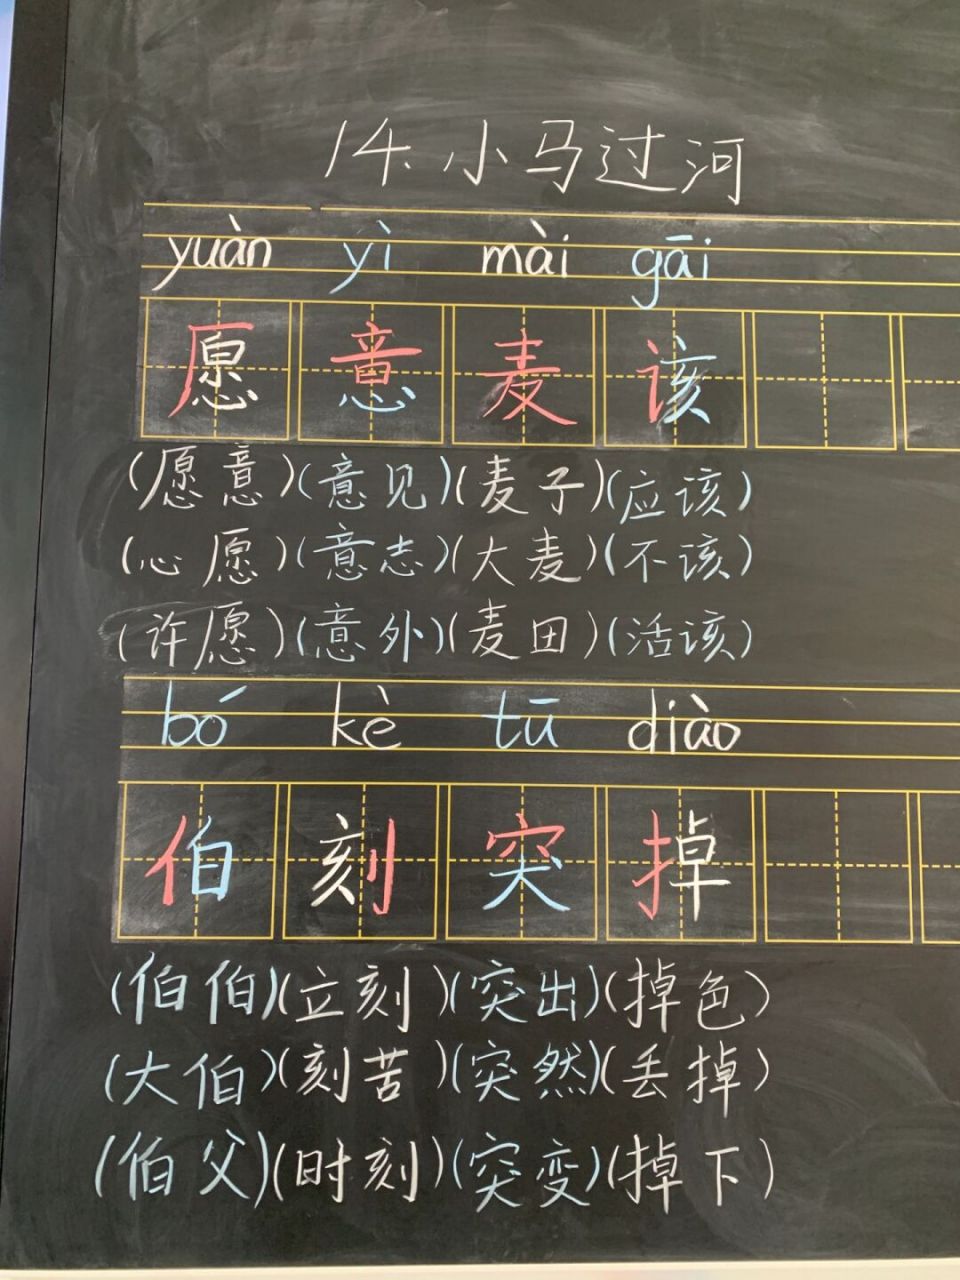 14.小马过河
yuàn yì mài gāi
愿意麦该
(愿意)(意见)(麦子)(应该)
(心愿)(意志)(大麦)(不该)
(许愿)(意外)(麦田)(活该)
bó kè tū diào
伯刻突掉
(伯伯)(立刻)(突出)(掉色)
(大伯)(刻苦)(突然)(丢掉)
(伯父)(时刻)(突变)(掉下)